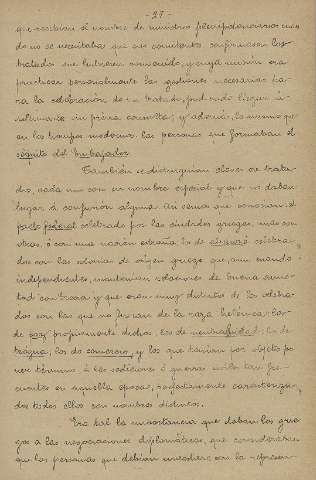 - 27 -
que recibían el nombre de ministros plenipotenciarios cuan
do no se necesitaba que sus comitentes confirmasen los
tratados que hubieran convenido, y cuya misión era
practicar personalmente las gestiones necesarias pa-
ra la celebración de un tratado, pudiendo
sin previa consulta; y además, lo mismo que
en los tiempos modernos, las personas que formaban el
séquito del Embajador.
También se distinguían clases de trata-
dos, cada uno con su nombre especial y que no daban
lugar á confusión alguna. Así vemos que conocían el
pacto federal celebrado por las ciudades griegas, unas con
otras, ó con una nación extraña; los de alianza celebra-
dos con las colonias de origen griego que, aun cuando
independientes, mantenían relaciones de buena amis-
tad con Grecia y que eran muy distintos de los celebra-
dos con las que no fueran de la raza helénica; los
de paz propiamente dichos, los de neutralidad, los de
tregua, los de comercio, y los que tenían por objeto po-
ner término á las sediciones ó guerras civiles tan fre-
cuentes en aquella época, perfectamente caracteriza-
dos todos ellos con nombres distintos.
Era tal la importancia que daban los grie-
gos á las negociaciones diplomáticas, que consideraban
que las personas que debían investirse con la represen-